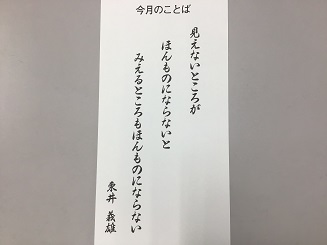 今月のことば
見えないところが
ほんものにならないと
みえるところもほんものにならない
東井 義雄